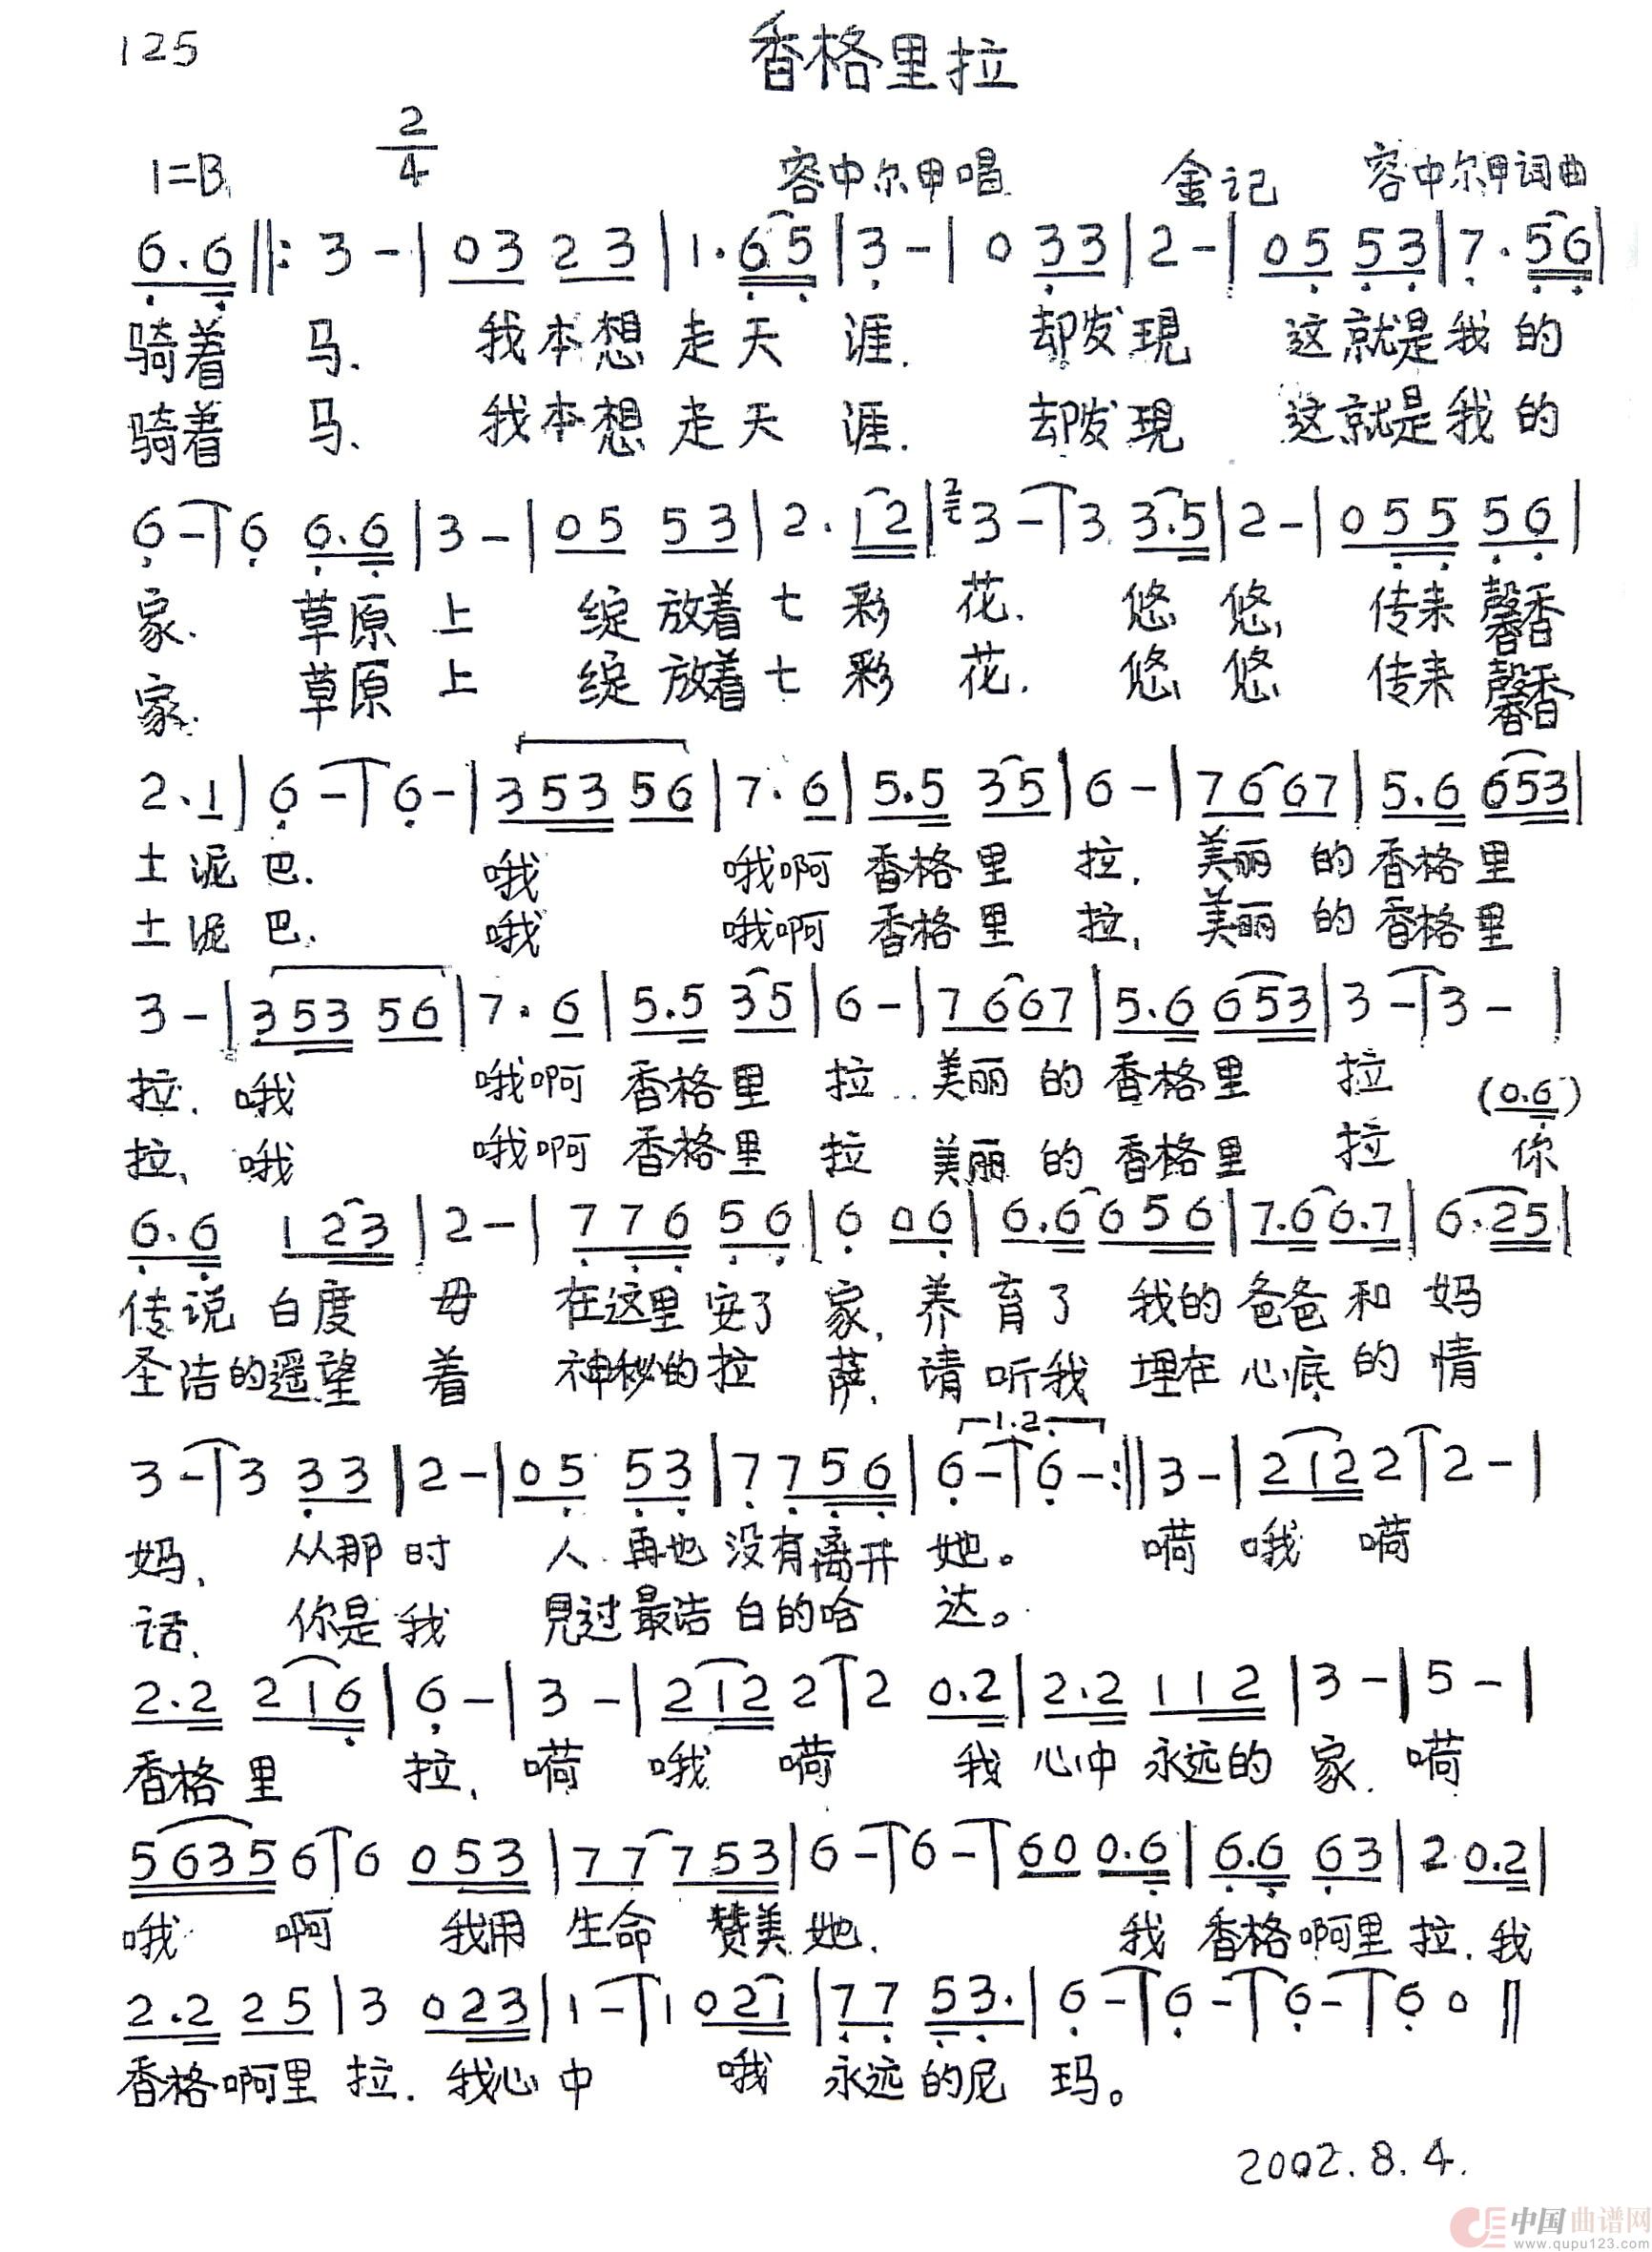 125
香格里拉
1=B 2/4 容中尔甲唱 金记 容中尔甲词曲
6.6‖: 3 - | 03 23 | 1.65 | 3 - | 0 33 | 2 - | 05 53 | 7.56 |
骑着 马、 我本想走天涯. 却发現 这就是我的
骑着 马、 我本想走天涯. 却发現 这就是我的
6 - | 6 6.6 | 3 - | 05 53 | 2.12 | 3 - | 3 3.5 | 2 - | 055 56 |
家. 草原上 绽放着七彩花. 悠悠, 传来馨香
家. 草原上 绽放着七彩花. 悠悠 传来馨香
2.1 | 6 - | 6 - | 353 56 | 7.6 | 5.5 35 | 6 - | 76 67 | 5.6 653 |
土泥巴. 哦 哦啊香格里拉, 美丽的香格里
土泥巴. 哦 哦啊香格里拉, 美丽的香格里
3 - | 353 56 | 7.6 | 5.5 35 | 6 - | 76 67 | 5.6 653 | 3 - | 3 - |
拉. 哦 哦啊香格里拉..美丽的香格里拉 (0.6)
拉、哦 哦啊香格里拉 美丽的香格里拉 你
6.6 123 | 2 - | 776 56 | 6 06 | 6.6 656 | 7.6 6.7 | 6.25 |
传说白度母 在这里安了家, 养育了我的爸爸和妈
圣洁的遥望着 神秘的拉萨, 请听我埋在心底的情
1.2.
3 - | 3 33 | 2 - | 05 53 | 7 756 | 6 - | 6 - :‖ 3 - | 212 2 | 2 - |
妈、 从那时人再也没有离开她。 嗬哦嗬
话、 你是我見过最洁白的哈达。
2.2 216 | 6 - | 3 - | 212 2 | 2 0.2 | 2.2 112 | 3 - | 5 - |
香格里拉, 嗬哦嗬 我心中永远的家. 嗬
5635 6 | 6 053 | 77 753 | 6 - | 6 - | 60 0.6 | 6.6 63 | 2 0.2 |
哦 啊 我用生命赞美她. 我香格啊里拉. 我
2.2 25 | 3 023 | 1 - | 1 021 | 77 53. | 6 - | 6 - | 6 - | 6 0 ‖
香格啊里拉. 我心中 哦 永远的尼玛。
2002.8.4.
中国曲谱网
www.qupu123.com